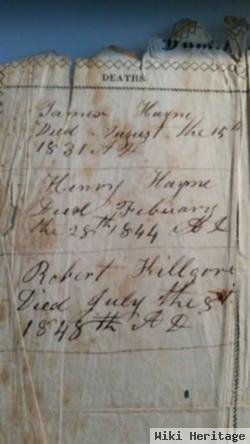 DEATHS.
James Hayne
Died August the 15th
1831 AD
Henry Hayne
Died Febuary
the 28th 1844 AD
Robert Killgore
Died July the 3d
1848th AD
Wiki Heritage